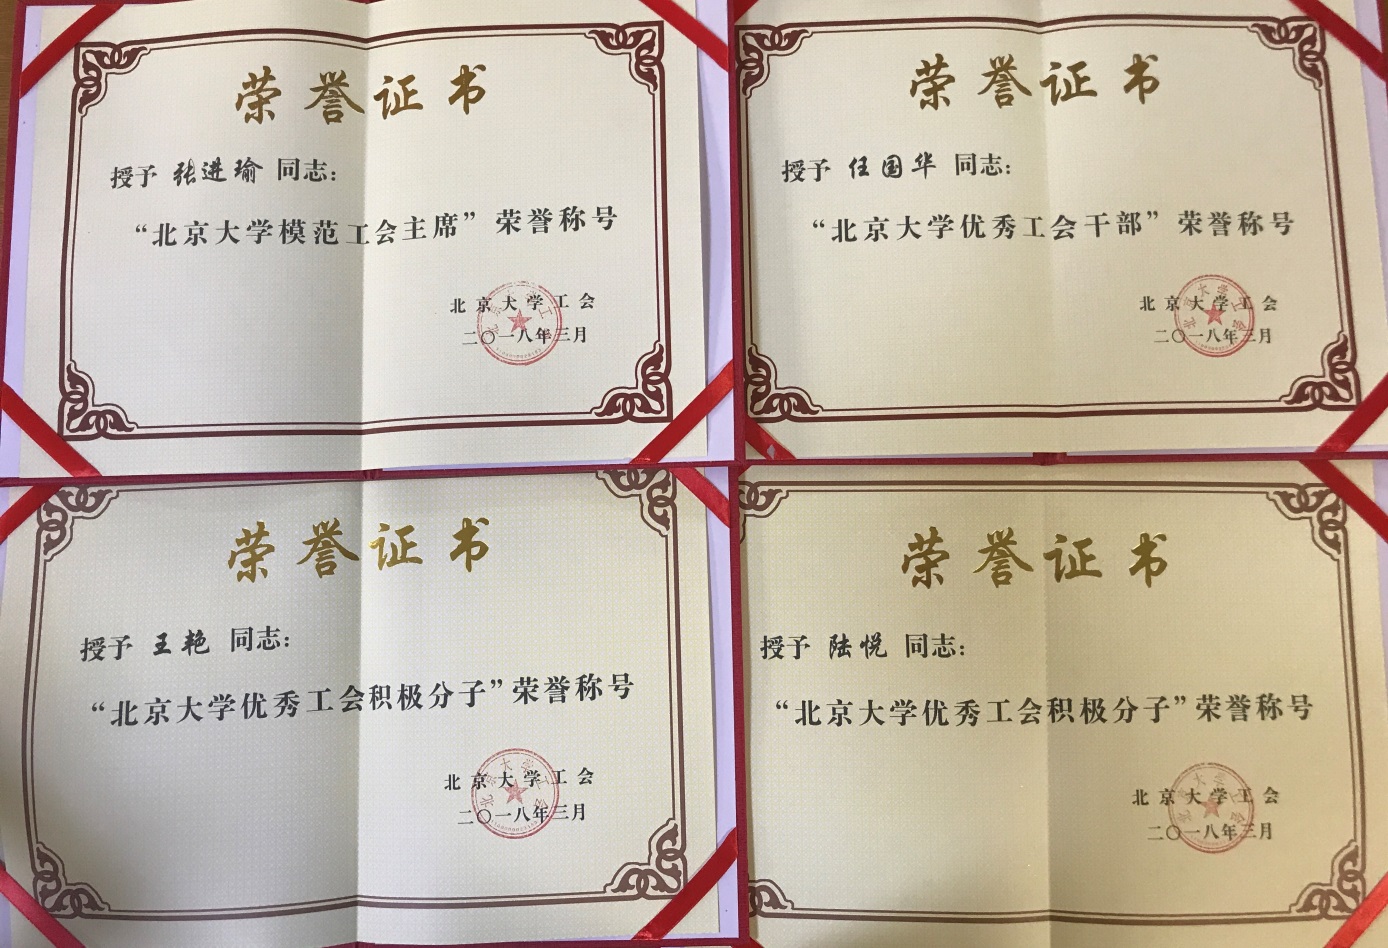 荣誉证书
授予 张进瑜 同志：
“北京大学模范工会主席”荣誉称号
北京大学工会
二〇一八年三月
荣誉证书
授予 任国华 同志：
“北京大学优秀工会干部”荣誉称号
北京大学工会
二〇一八年三月
荣誉证书
授予 王艳 同志：
“北京大学优秀工会积极分子”荣誉称号
北京大学工会
二〇一八年三月
荣誉证书
授予 陆悦 同志：
“北京大学优秀工会积极分子”荣誉称号
北京大学工会
二〇一八年三月